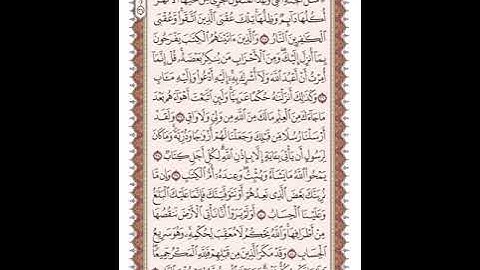 أُكُلُهَا دَآئِمٌ وَظِلُّهَا تِلْكَ عُقْبَى ٱلَّذِينَ ٱتَّقَوا۟ وَّعُقْبَى
ٱلْكَٰفِرِينَ ٱلنَّارُ ۝ وَٱلَّذِينَ ءَاتَيْنَٰهُمُ ٱلْكِتَٰبَ يَفْرَحُونَ
بِمَآ أُنزِلَ إِلَيْكَ وَمِنَ ٱلْأَحْزَابِ مَن يُنكِرُ بَعْضَهُۥ قُلْ إِنَّمَآ
أُمِرْتُ أَنْ أَعْبُدَ ٱللَّهَ وَلَآ أُشْرِكَ بِهِۦٓ إِلَيْهِ أَدْعُوا۟ وَإِلَيْهِ مَـَٔابِ
۝ وَكَذَٰلِكَ أَنزَلْنَٰهُ حُكْمًا عَرَبِيًّا وَلَئِنِ ٱتَّبَعْتَ أَهْوَآءَهُم بَعْدَ
مَا جَآءَكَ مِنَ ٱلْعِلْمِ مَا لَكَ مِنَ ٱللَّهِ مِن وَلِىٍّ وَلَا وَاقٍ ۝ وَلَقَدْ
أَرْسَلْنَا رُسُلًا مِّن قَبْلِكَ وَجَعَلْنَا لَهُمْ أَزْوَٰجًا وَذُرِّيَّةً وَمَا كَانَ
لِرَسُولٍ أَن يَأْتِىَ بِـَٔايَةٍ إِلَّا بِإِذْنِ ٱللَّهِ لِكُلِّ أَجَلٍ كِتَابٌ ۝
يَمْحُوا۟ ٱللَّهُ مَا يَشَآءُ وَيُثْبِتُ وَعِندَهُۥٓ أُمُّ ٱلْكِتَٰبِ ۝ وَإِن مَّا
نُرِيَنَّكَ بَعْضَ ٱلَّذِى نَعِدُهُمْ أَوْ نَتَوَفَّيَنَّكَ فَإِنَّمَا عَلَيْكَ ٱلْبَلَٰغُ
وَعَلَيْنَا ٱلْحِسَابُ ۝ أَوَلَمْ يَرَوْا۟ أَنَّا نَأْتِى ٱلْأَرْضَ نَنقُصُهَا
مِنْ أَطْرَافِهَا وَٱللَّهُ يَحْكُمُ لَا مُعَقِّبَ لِحُكْمِهِۦ وَهُوَ سَرِيعُ
ٱلْحِسَابِ ۝ وَقَدْ مَكَرَ ٱلَّذِينَ مِن قَبْلِهِمْ فَلِلَّهِ ٱلْمَكْرُ جَمِيعًا